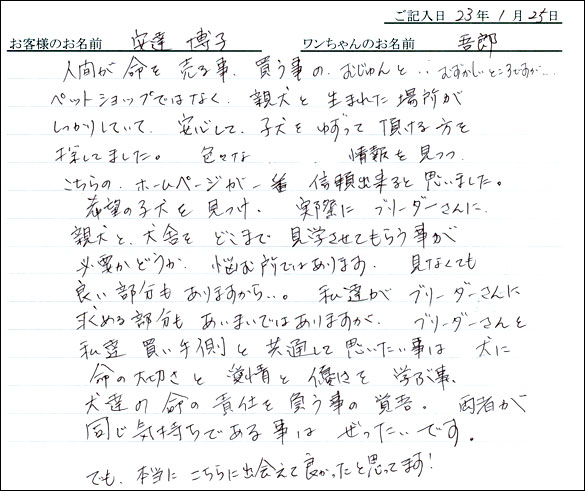 ご記入日 23年 1月 25日
お客様のお名前 安達 博子 ワンちゃんのお名前 吾郎
人間が 命を 売る事、買う事の、むじゅんと‥むずかしいところですが…
ペットショップではなく、親犬と 生まれた 場所が
しっかりしていて、安心して、子犬を ゆずって 頂ける 方を
探してました。 色々な 情報を 見つつ
こちらの、ホームページが 一番 信頼出来ると 思いました。
希望の子犬を 見つけ、 実際に ブリーダーさんに、
親犬と、犬舎を どこまで 見学させてもらう事が
必要かどうか、悩む所ではあります、 見なくても
良い部分も ありますから‥。 私達が ブリーダーさんに
求める部分も あいまいではありますが、 ブリーダーさんと
私達 買い手側と 共通して 思いたい事は 犬に
命の大切さと 愛情と 優しさを 学ぶ事、
犬達の命の責任を 負う事の 覚悟。 両者が
同じ気持ちである事は ぜったいです。
でも、本当に こちらに出会えて 良かったと思ってます!